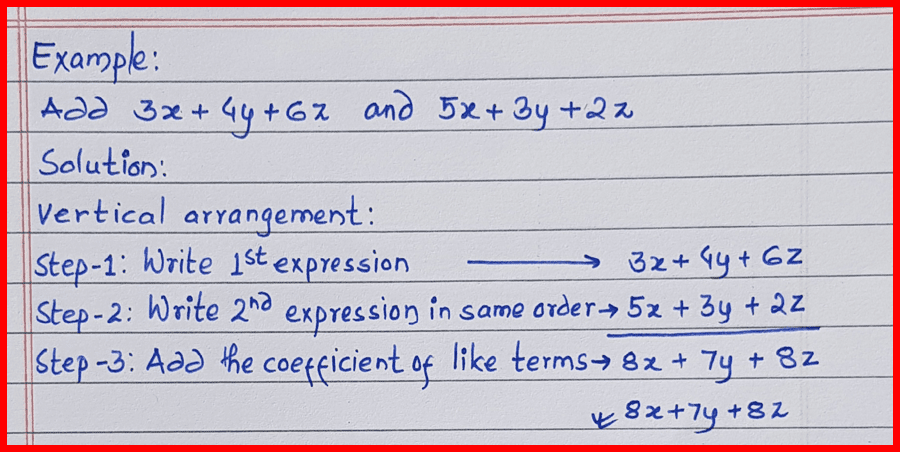 Example:
Add 3x + 4y + 6z and 5x + 3y + 2z
Solution:
Vertical arrangement:
Step-1: Write 1st expression → 3x + 4y + 6z
Step-2: Write 2nd expression in same order → 5x + 3y + 2z
Step-3: Add the coefficient of like terms → 8x + 7y + 8z
↙ 8x + 7y + 8z